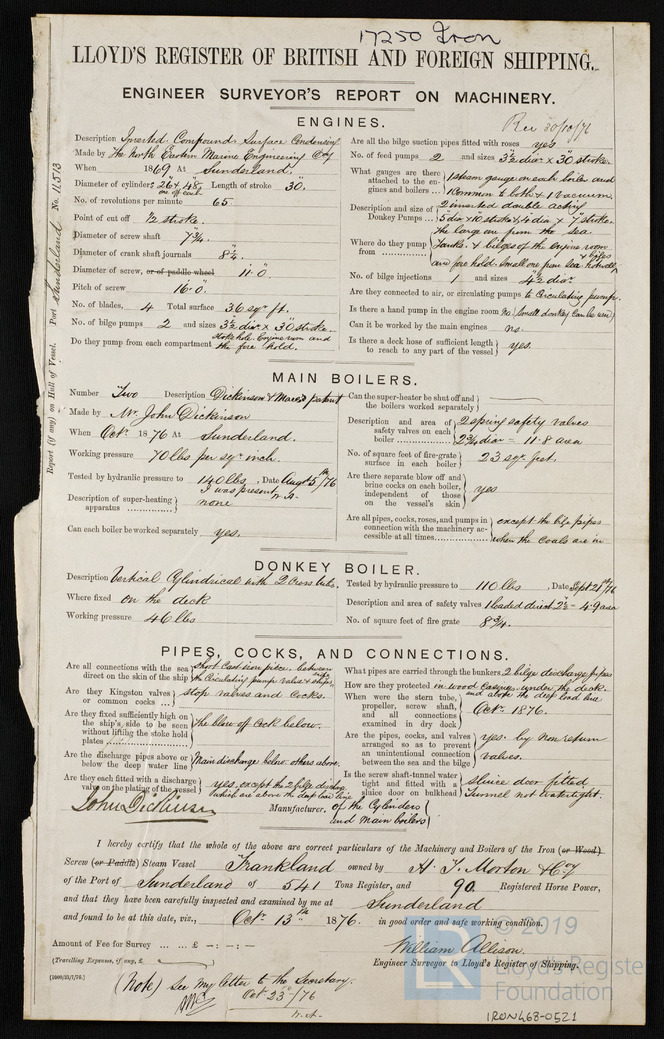 17250 Iron
LLOYD'S REGISTER OF BRITISH AND FOREIGN SHIPPING.
ENGINEER SURVEYOR'S REPORT ON MACHINERY.
Rec 30/10/76
Report (if any) on Hull of Vessel. Port Sunderland No. 11513
ENGINES.
Description Inverted Compound Surface Condensing
Made by The North Eastern Marine Engineering Coy
When 1869 At Sunderland.
Diameter of cylinders 26 & 48 Length of stroke 30.
one off each
No. of revolutions per minute 65
Point of cut off ½ stroke.
Diameter of screw shaft 7¾.
Diameter of crank shaft journals 8¼.
Diameter of screw, or of paddle wheel 11.0.
Pitch of screw 16.0.
No. of blades, 4 Total surface 36 sqr. ft.
No. of bilge pumps 2 and sizes 3½ diar. x 30 stroke.
Do they pump from each compartment stoke hole. Engine room and
the fore hold.
Are all the bilge suction pipes fitted with roses yes
No. of feed pumps 2 and sizes 3½ diar x 30 stroke.
What gauges are there attached to the engines and boilers ... 1 steam gauge on each boiler and
1 Common to both & 1 vacuum
Description and size of Donkey Pumps 2 inverted double acting
5 diar x 10 stroke & 4 dia x 7 stroke.
Where do they pump from the large one from the sea.
tanks & bilges of the engine room
and fore hold. small one from sea hotwell
& bilges
No. of bilge injections 1 and sizes 4½ diar.
Are they connected to air, or circulating pumps to Circulating pump.
Is there a hand pump in the engine room no. (small donkey can be used)
Can it be worked by the main engines no.
Is there a deck hose of sufficient length to reach to any part of the vessel yes.
MAIN BOILERS.
Number Two Description Dickinson & Mace's patent
Made by Mr. John Dickinson
When Octr. 1876 At Sunderland.
Working pressure 70 lbs per sqr. inch.
Tested by hydraulic pressure to 140 lbs, Date Augt 5th/76
I was present W.A.
Description of super-heating apparatus none
Can each boiler be worked separately yes.
Can the super-heater be shut off and the boilers worked separately
Description and area of safety valves on each boiler 2 spring safety valves
2¾ diar = 11.8 area
No. of square feet of fire-grate surface in each boiler 23 sqr. feet.
Are there separate blow off and brine cocks on each boiler, independent of those on the vessel's skin yes
Are all pipes, cocks, roses, and pumps in connection with the machinery accessible at all times except the bilge pipes
when the coals are in
DONKEY BOILER.
Description Vertical Cylindrical with 2 cross tubes.
Where fixed on the deck
Working pressure 46 lbs
Tested by hydraulic pressure to 110 lbs, Date Sept 21st/76
Description and area of safety valves 1 loaded direct 2½ - 4.9 area
No. of square feet of fire grate 8¾.
PIPES, COCKS, AND CONNECTIONS.
Are all connections with the sea direct on the skin of the ship short cast iron pipes, between
the Circulating pump valves & ship's side
Are they Kingston valves or common cocks ... stop valves and cocks.
Are they fixed sufficiently high on the ship's side to be seen without lifting the stoke hold plates the blow off cock below.
Are the discharge pipes above or below the deep water line Main discharge below others above.
Are they each fitted with a discharge valve on the plating of the vessel yes, except the 2 bilge discharge
which are above the deep load line
What pipes are carried through the bunkers, 2 bilge discharge pipes
How are they protected in wood casings under the deck.
and above the deep load line
When were the stern tube, propeller, screw shaft, and all connections examined in dry dock Octr. 1876.
Are the pipes, cocks, and valves arranged so as to prevent an unintentional connection between the sea and the bilge yes. by non return
valves.
Is the screw shaft-tunnel water tight and fitted with a sluice door on bulkhead sluice door fitted
Tunnel not watertight.
John Dickinson Manufacturer. of the Cylinders
and Main boilers
I hereby certify that the whole of the above are correct particulars of the Machinery and Boilers of the Iron (or Wood)
Screw (or Paddle) Steam Vessel Frankland owned by H. T. Morton & Coy
of the Port of Sunderland of 541 Tons Register, and 90 Registered Horse Power,
and that they have been carefully inspected and examined by me at Sunderland
and found to be at this date, viz., Octr. 13th 1876. in good order and safe working condition.
Amount of Fee for Survey ... ... £ -:-:-
(Travelling Expenses, if any, £
William Allison.
Engineer Surveyor to Lloyd's Register of Shipping.
[2000/23/1/76.]
(Note) See my letter to the Secretary.
Oct 23d/76
W.A.
LR © 2019
Lloyd's Register
Foundation
IRON468-0521